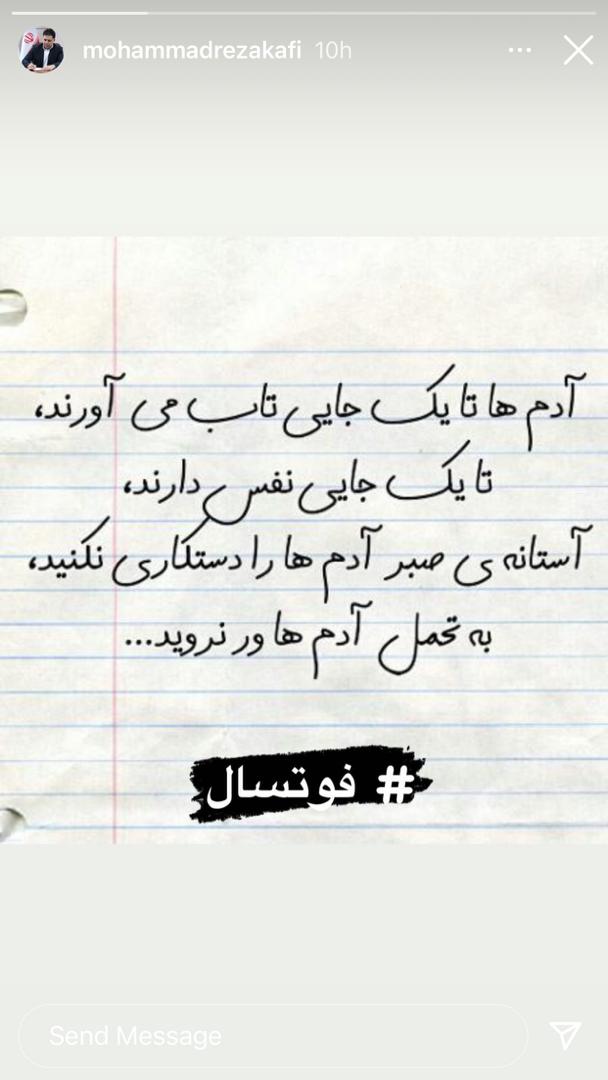 mohammadrezakafi 10h
آدم ها تا یک جایی تاب می آورند،
تا یک جایی نفس دارند،
آستانه ی صبر آدم ها را دستکاری نکنید،
به تحمل آدم ها ور نروید...
# فوتسال
Send Message